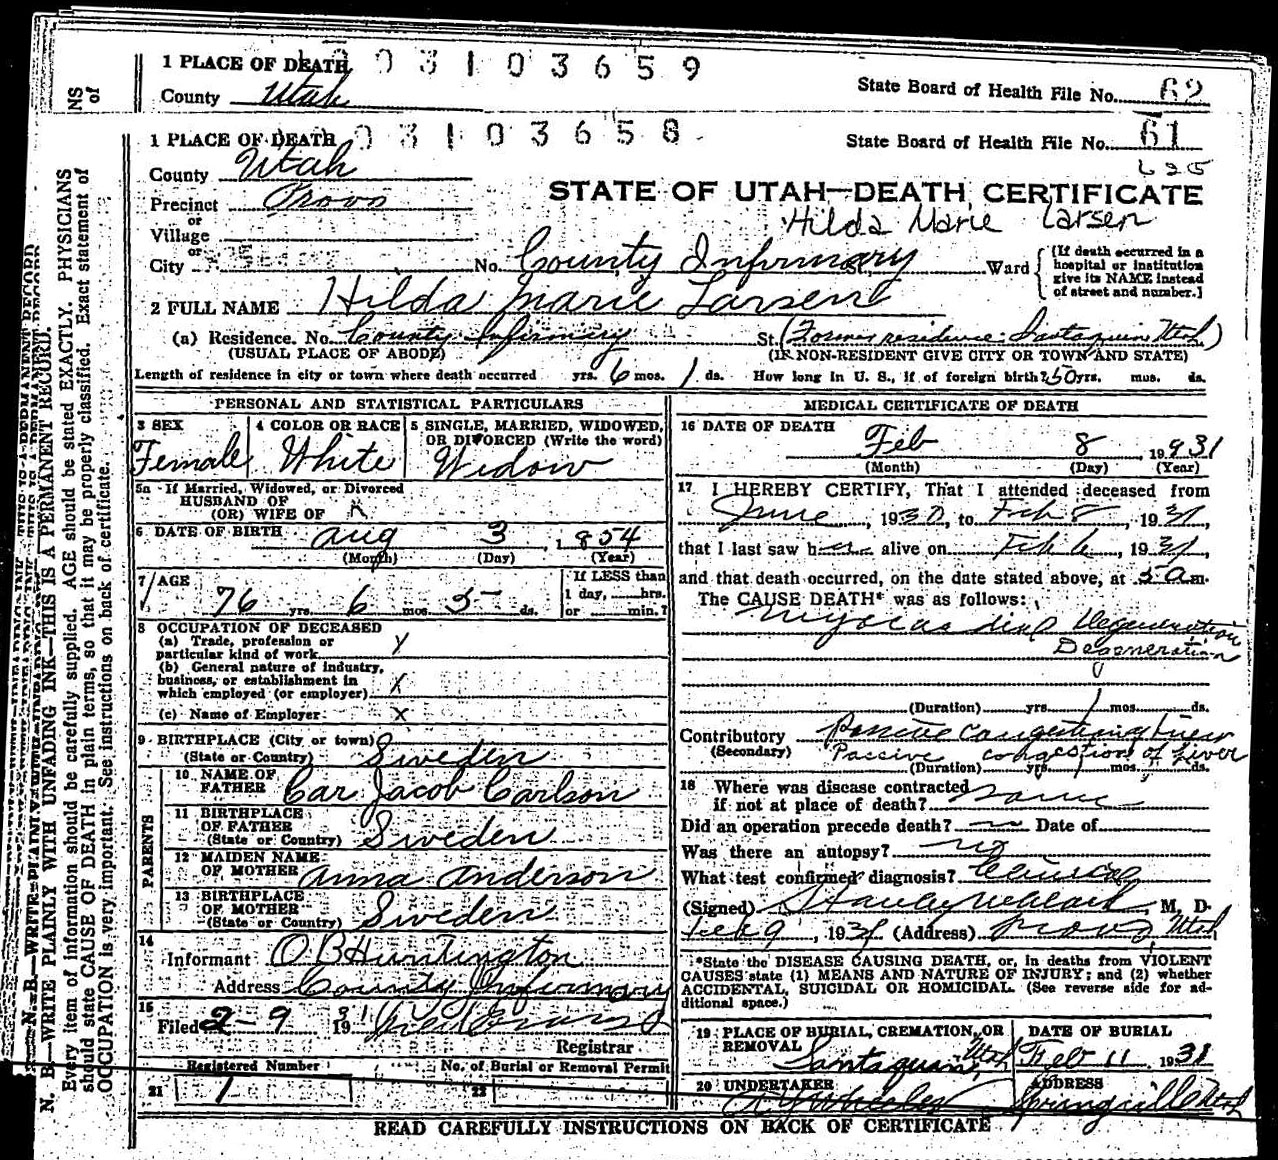 1 PLACE OF DEATH 03103659
State Board of Health File No. 62
County Utah
NS
of
1 PLACE OF DEATH 03103658
State Board of Health File No. 61
625
County Utah
STATE OF UTAH—DEATH CERTIFICATE
Precinct Provo
or
Village
Hilda Marie Larsen
or
City
No. County Infirmary St. Ward
[If death occurred in a
hospital or institution
give its NAME instead
of street and number.]
2 FULL NAME Hilda Marie Larsen
(a) Residence. No. County Infirmary St. (Former residence: Santaquin Utah)
(USUAL PLACE OF ABODE) (IF NON-RESIDENT GIVE CITY OR TOWN AND STATE)
Length of residence in city or town where death occurred yrs. 6 mos. 1 ds. How long in U. S., if of foreign birth? 50 yrs. mos. ds.
PERSONAL AND STATISTICAL PARTICULARS
3 SEX
Female
4 COLOR OR RACE
White
5 SINGLE, MARRIED, WIDOWED,
OR DIVORCED (Write the word)
Widow
5a If Married, Widowed, or Divorced
HUSBAND OF
(OR) WIFE OF
6 DATE OF BIRTH Aug 3, 1854
(Month) (Day) (Year)
7 AGE
76 yrs. 6 mos. 5 ds.
If LESS than
1 day, hrs.
or min.?
8 OCCUPATION OF DECEASED
(a) Trade, profession or
particular kind of work x
(b) General nature of industry,
business, or establishment in
which employed (or employer) x
(c) Name of Employer x
9 BIRTHPLACE (City or town)
(State or Country) Sweden
PARENTS
10 NAME OF
FATHER Car Jacob Carlson
11 BIRTHPLACE
OF FATHER
(State or Country) Sweden
12 MAIDEN NAME
OF MOTHER Anna Anderson
13 BIRTHPLACE
OF MOTHER
(State or Country) Sweden
14
Informant O B Huntington
Address County Infirmary
15
Filed 2-9 1931
Registrar
Registered Number
21 1
No. of Burial or Removal Permit
22
MEDICAL CERTIFICATE OF DEATH
16 DATE OF DEATH
Feb 8 1931
(Month) (Day) (Year)
17 I HEREBY CERTIFY, That I attended deceased from
June, 1930, to Feb 8, 1931,
that I last saw her alive on Feb 6, 1931,
and that death occurred, on the date stated above, at 5 a m.
The CAUSE DEATH* was as follows:
Myocardial Degeneration
Degeneration
(Duration) yrs. mos. ds.
Contributory Passive congestion of Liver
(Secondary) Passive congestion of Liver
(Duration) yrs. mos. ds.
18 Where was disease contracted
if not at place of death? same
Did an operation precede death? Date of
Was there an autopsy? no
What test confirmed diagnosis? Clinical
(Signed) Stanley M. D.
Feb 9, 1931 (Address) Provo, Utah
*State the DISEASE CAUSING DEATH, or, in deaths from VIOLENT
CAUSES state (1) MEANS AND NATURE OF INJURY; and (2) whether
ACCIDENTAL, SUICIDAL OR HOMICIDAL. (See reverse side for ad-
ditional space.)
19 PLACE OF BURIAL, CREMATION, OR
REMOVAL
Santaquin, Utah
DATE OF BURIAL
Feb 11 1931
20 UNDERTAKER
A Y Wheeler
ADDRESS
Springville Utah
READ CAREFULLY INSTRUCTIONS ON BACK OF CERTIFICATE
N. B.—WRITE PLAINLY WITH UNFADING INK—THIS IS A PERMANENT RECORD.
Every item of information should be carefully supplied. AGE should be stated EXACTLY. PHYSICIANS
should state CAUSE OF DEATH in plain terms, so that it may be properly classified. Exact statement of
OCCUPATION is very important. See instructions on back of certificate.